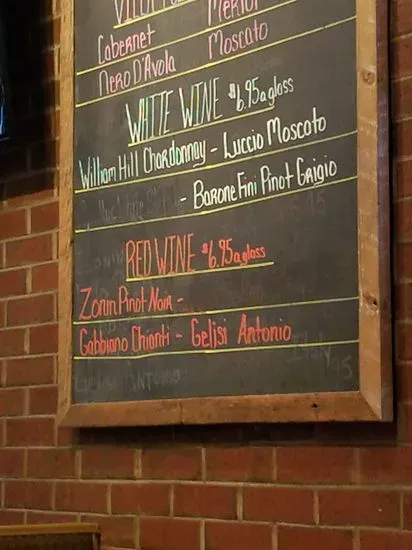 Merlot
Cabernet Moscato
Nero D'Avola
WHITE WINE $6.95 a glass
William Hill Chardonnay - Luccio Moscato
- Barone Fini Pinot Grigio
RED WINE $6.95 a glass
Zonin Pinot Noir -
Gabbiano Chianti - Gelisi Antonio
Italy